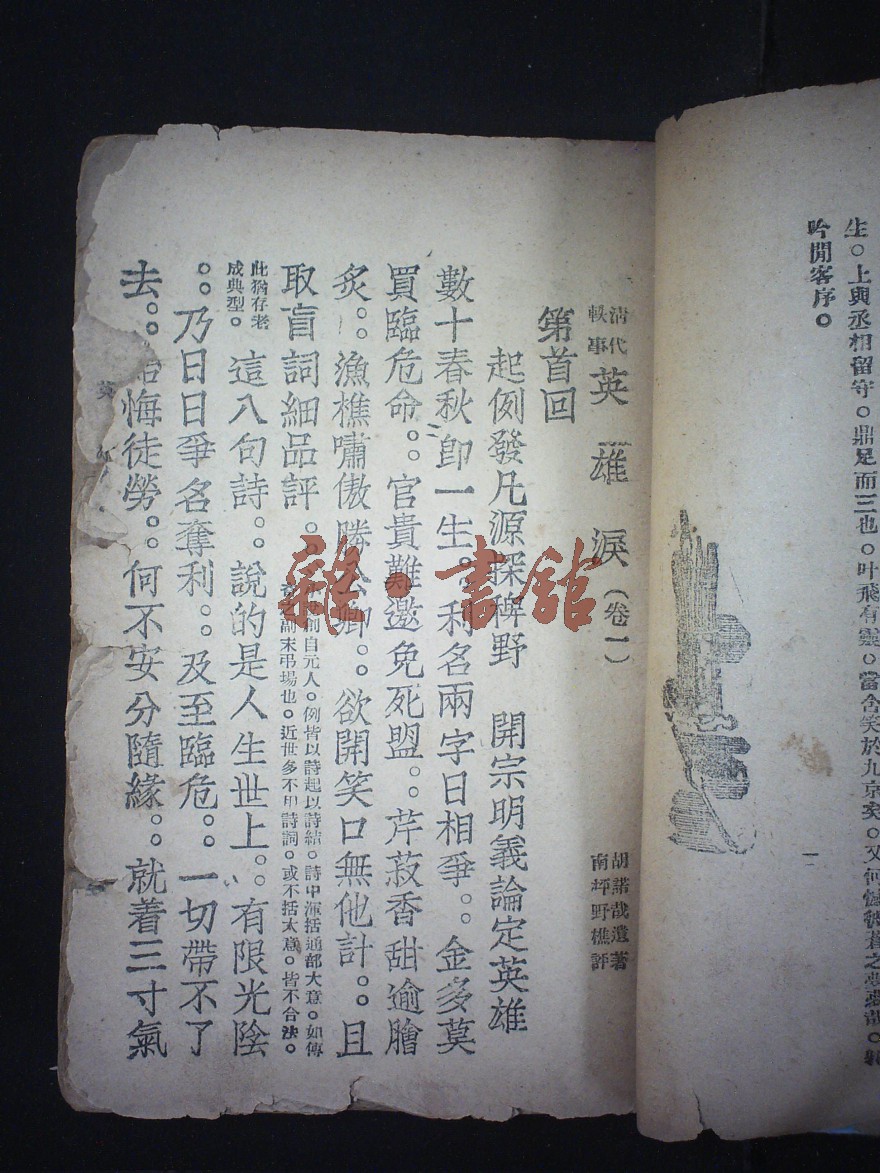 生。上與丞相留守。鼎足而三也。叶飛有靈。當含笑於九京矣。又何憾
吟閒客序。
一
清代軼事 英雄淚 (卷一)
胡諾哉遺著
南坪野樵評
第首回
起例發凡源探稗野 開宗明義論定英雄
數十春秋卽一生。利名兩字日相爭。。金多莫
買臨危命。。官貴難邀免死盟。。芹菽香甜逾膾
炙。。漁樵嘯傲勝公卿。。欲開笑口無他計。。且
取盲詞細品評。。
創自元人。例皆以詩起以詩結。詩中渾括通部大意。如傳
之副末弔場也。近世多不用詩詞。或不括大意。皆不合法。
此猶存老
成典型。
這八句詩。。說的是人生世上。。有限光陰
。。乃日日爭名奪利。。及至臨危。。一切帶不了
去。。悔徒勞。。何不安分隨緣。。就着三寸氣
英
雜·書館